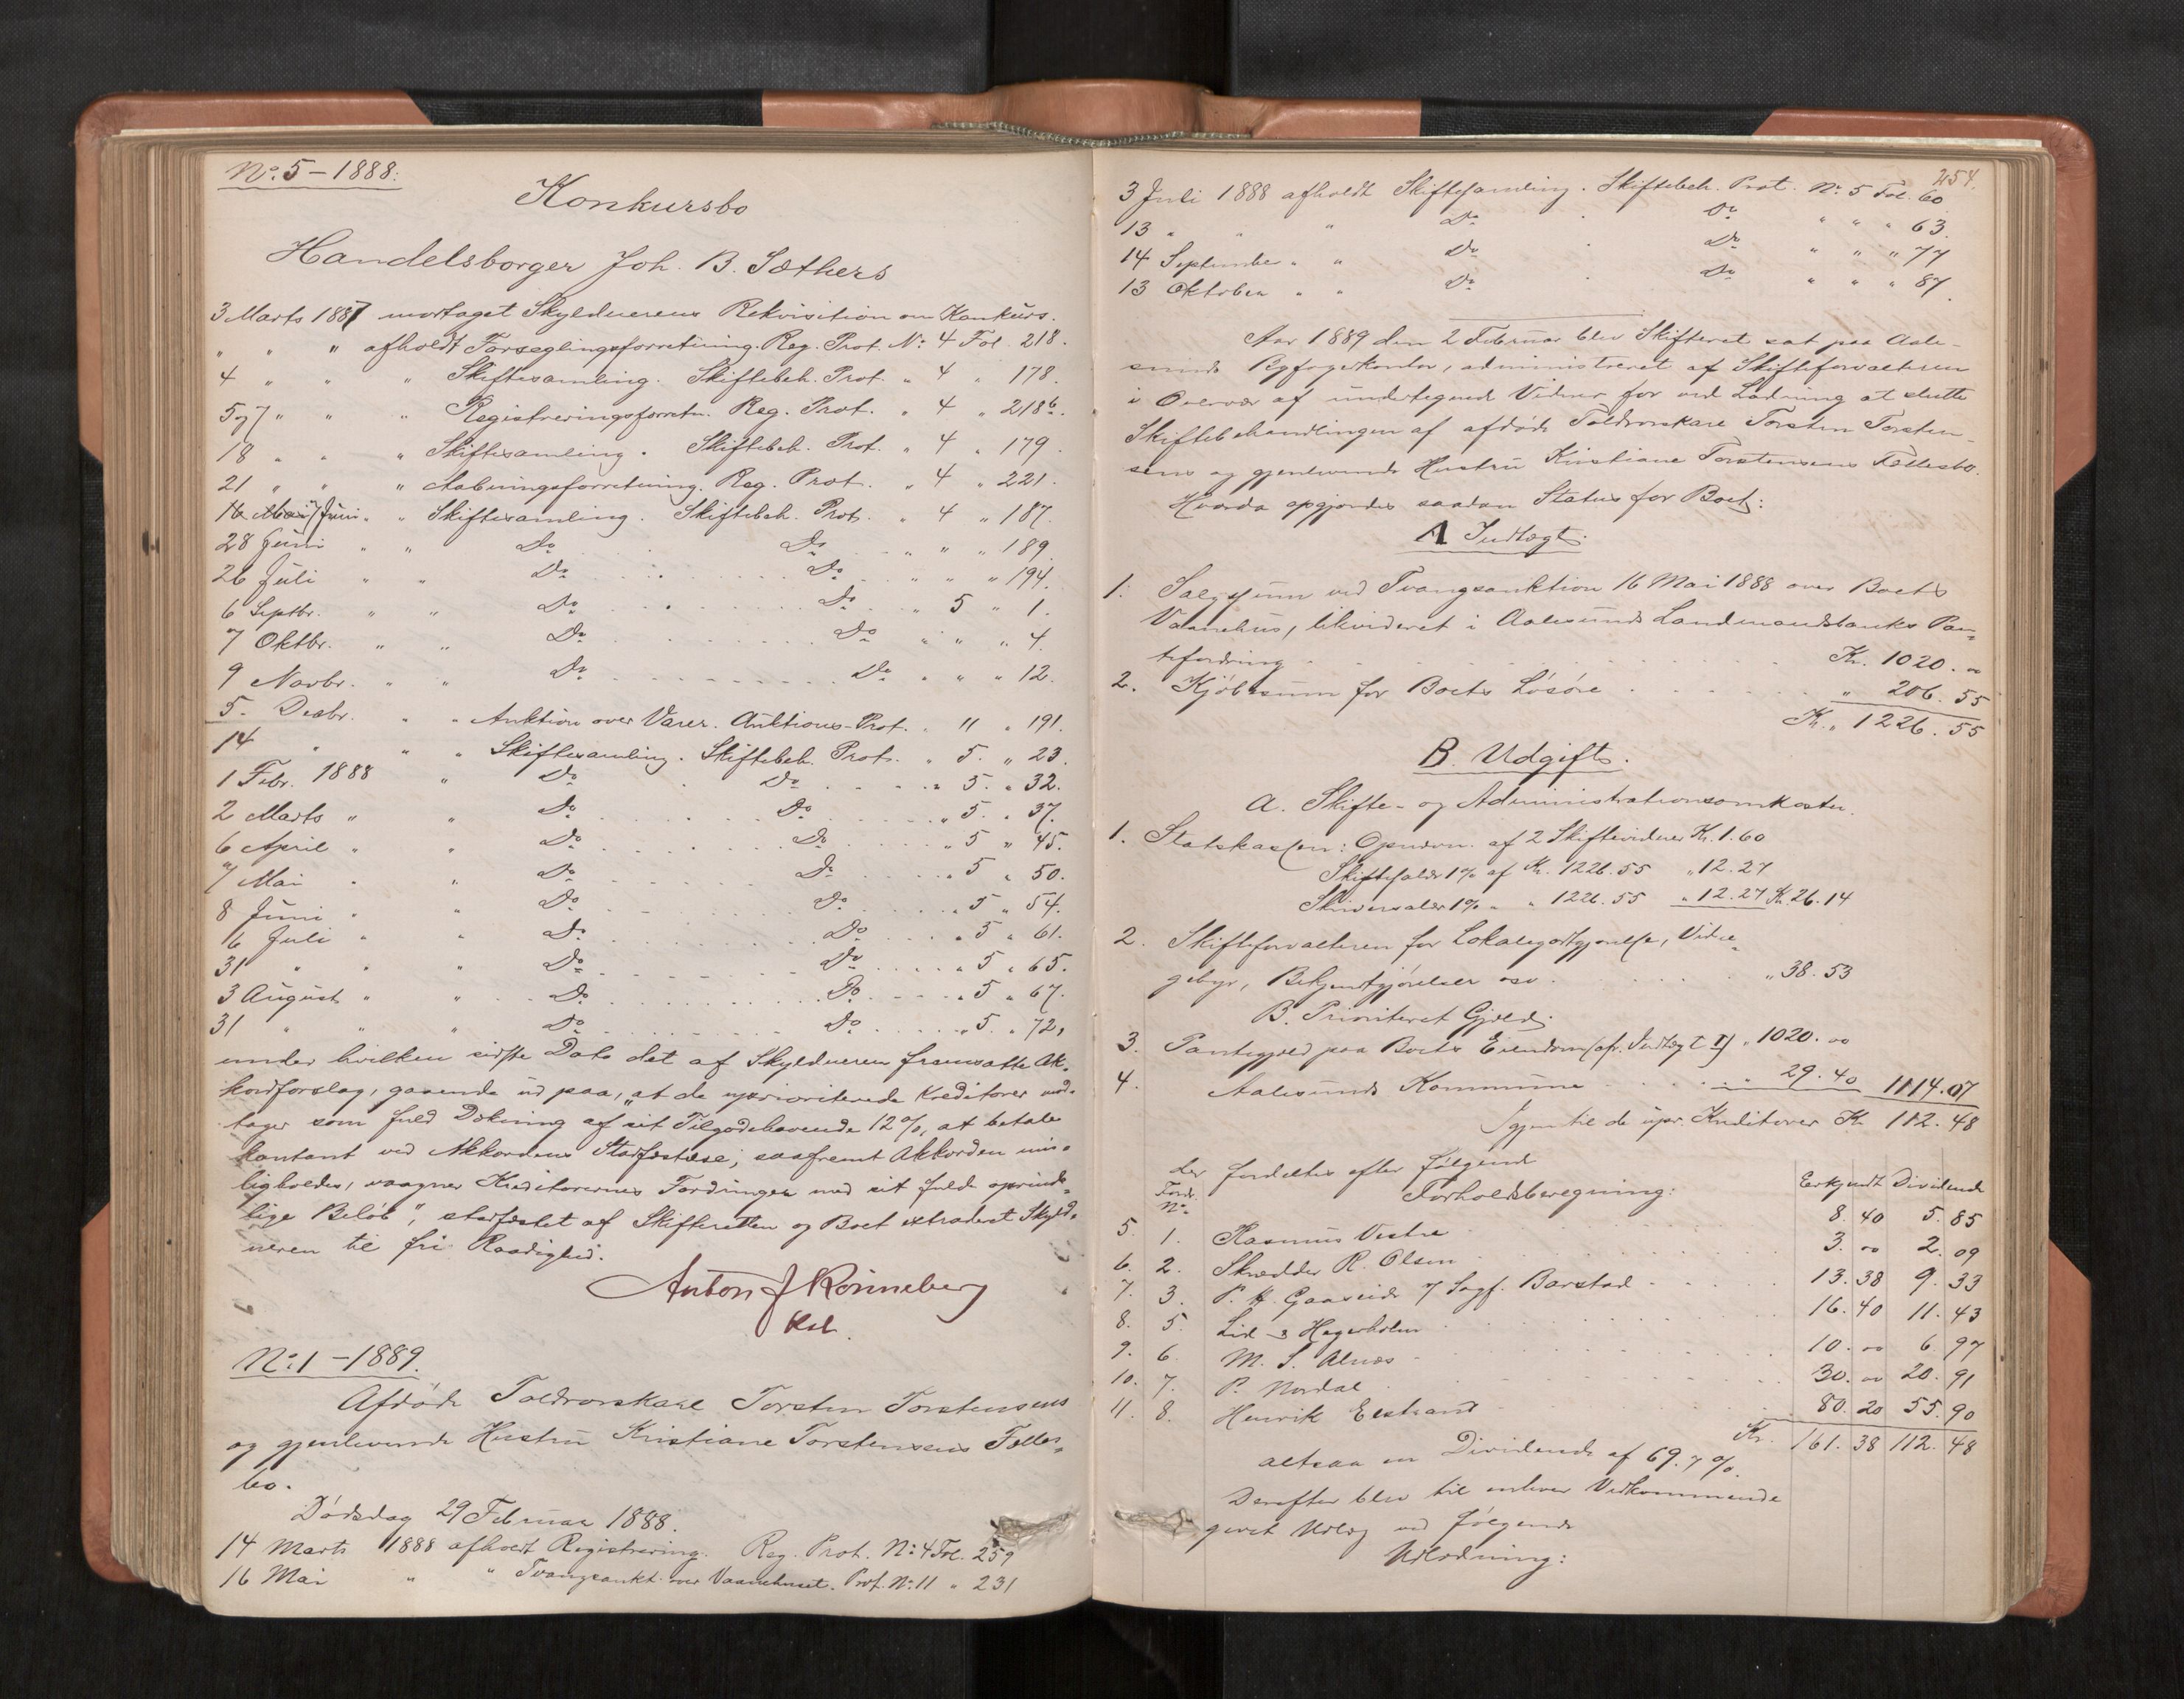 No. 5 – 1888:
Konkursbo
Handelsborger Joh. B. Sæthers
3 Marts 1887 modtaget Skyldnerens Rekvisition om Konkurs.
" " " afholdt Forseglingsforretning. Reg. Prot. No: 4 Fol. 218.
4 " " " Skiftesamling. Skiftebeh. Prot. " 4 " 178.
5 og 7 " " " Registreringsforretn. Reg. Prot. " 4 " 218b.
18 " " " Skiftesamling. Skiftebeh. Prot. " 4 " 179.
21 " " " Aabningsforretning. Reg. Prot. " 4 " 221.
Juni " " Skiftesamling. Skiftebeh. Prot. " 4 " 187.
28 Juni " " Do Do " " " 189.
26 Juli " " Do Do " " " 194.
6 Septbr. " " Do Do " 5 " 1.
7 Oktbr. " " Do Do " " " 4.
9 Novbr. " " Do Do " " " 12.
5. Decbr. " " Auktion over Varer. Auktions-Prot. " 11 " 191.
14 " " " Skiftesamling. Skiftebeh. Prot. " 5. " 23.
1 Febr. 1888 " Do Do " 5. " 32.
2 Marts " " Do Do " 5. " 37.
6 April " " Do Do " 5 " 45.
7 Mai " " Do Do " 5 " 50.
8 Juni " " Do Do " 5 " 54.
16 Juli " " Do Do " 5 " 61.
31 " " " Do Do " 5 " 65.
3 August " " Do Do " 5 " 67.
31 " " " Do Do " 5. " 72,
under hvilken sidste Dato det af Skyldneren fremsatte Ak-
kordforslag, gaaende ud paa, "at de uprioriterede Kreditorer mod-
tager som fuld Dækning af sit Tilgodehavende 12 %, at betale
kontant ved Akkordens Stadfæstelse; saafremt Akkorden mis-
ligholdes, vaagner Kreditorernes Fordringer med sit fulde oprinde-
lige Beløb", stadfæstet af Skifteretten og Boet extraderet Skyld-
neren til fri Raadighed.
Anton J Rønneberg
Kst.
No. 1 – 1889.
Afdøde Toldrorskarl Torsten Torstensens
og gjenlevende Hustru Kristiane Torstensens Fælles-
bo.
Dødsdag 29 Februar 1888.
14 Marts 1888 afholdt Registrering. Reg. Prot. No: 4 Fol. 259
16 Mai " " Tvangsaukt. over Vaanehuset. Prot. No. 11 " 231
254.
3 Juli 1888 afholdt Skiftesamling. Skiftebeh. Prot. No. 5 Fol. 60
13 " " " Do Do " " " 63.
14 September " " Do Do " " " 77
13 Oktober " " Do Do " " " 87.
Aar 1889 den 2 Februar blev Skifteret sat paa Aale-
sunds Byfogedkontor, administreret af Skifteforvalteren
i Overvær af undertegnede Vidner for ved Lodning at slutte
Skiftebehandlingen af afdøde Toldrorskarl Torsten Torsten-
sens og gjenlevende Hustru Kristiane Torstensens Fællesbo.
Hvorda opgjordes saadan Status for Boet:
A Indtægt.
1. Salgssum ved Tvangsauktion 16 Mai 1888 over Boets
Vaanehus, likvideret i Aalesunds Landmandsbanks Pan-
tefordring Kr. 1020. oo
2. Kjøbesum for Boets Løsøre " 206. 55
Kr. " 1226. 55
B. Udgift.
a. Skifte- og Administrationsomkoster.
1. Statskassen: Opnævn. af 2 Skiftevidner Kr. 1.60
Skiftesalær 1% af Kr. 1226.55 " 12.27
Skriversalær 1% " " 1226.55 " 12.27 Kr. 26.14
2. Skifteforvalteren for Lokalegodtgjørelse, Vidne-
gebyr, Bekjendtgjørelser osv. " 38. 53
B. Prioriteret Gjæld.
3. Pantegjæld paa Boets Eiendom (cfr. Indtægt 1) " 1020. oo
4. Aalesunds Kommune " 29. 40 1114.07
Igjen til de upr. Kreditorer Kr. 112. 48
der fordeltes efter følgende
Forholdsberegning:
Ford. No. Erkjendt Dividende
5. 1. Rasmus Vestre 8. 40 5. 85
6. 2. Skrædder R. Olsen 3. oo 2. 09
7. 3. P. H. Gaaseide v/ Sagf. Barstad 13. 38 9. 33
8. 5. Lid & Hagerholm 16. 40 11. 43
9. 6. M. S. Alnæs 10. oo 6. 97
10. 7. P. Nordal 30. oo 20. 91
11. 8. Henrik Eestrand 80. 20 55. 90
Kr. 161. 38 112. 48
altsaa en Dividende af 69.7 %.
Derefter blev til enhver Vedkommende
gjort Udlæg ved følgende
Udlodning: